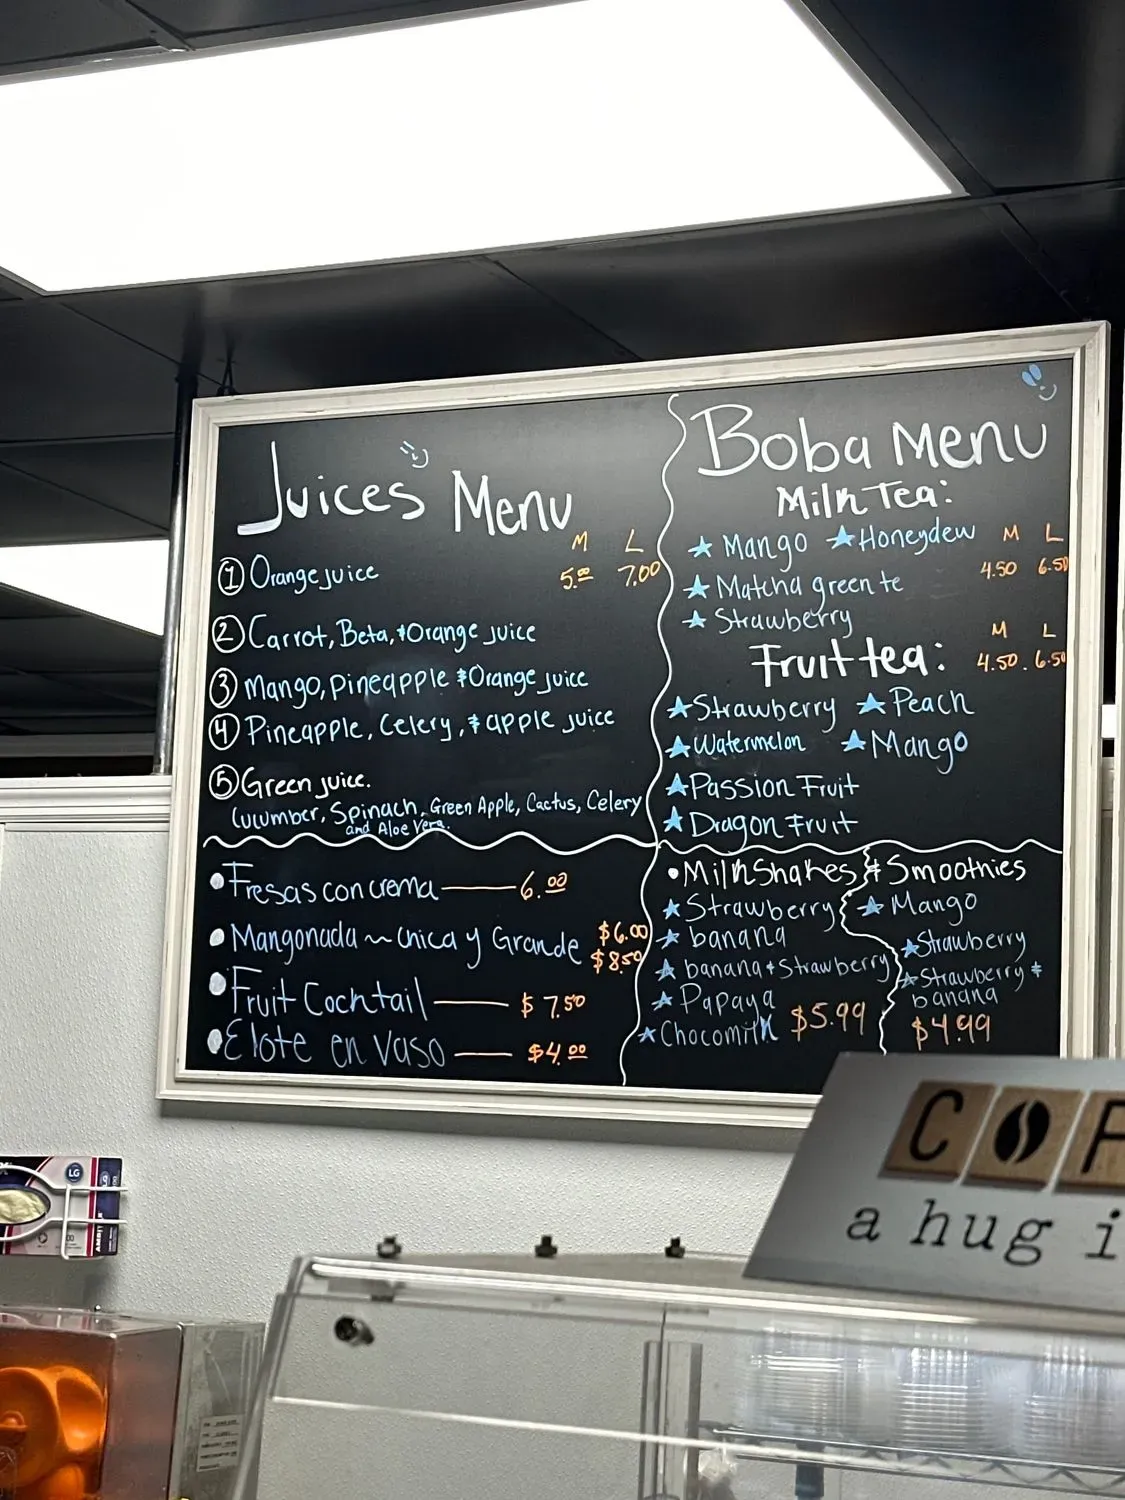 Juices Menu
M L
① Orange juice 5.00 7.00
② Carrot, Beta, & Orange juice
③ Mango, pineapple & Orange juice
④ Pineapple, Celery, & apple juice
⑤ Green juice.
Cucumber, Spinach, Green Apple, Cactus, Celery
and Aloe Vera.
• Fresas con crema — 6.00
• Mangonada ~ chica y Grande $6.00
$8.50
• Fruit Cocktail — $7.50
• Elote en vaso — $4.00
Boba Menu
Milk Tea:
★ Mango ★ Honeydew M L
★ Matcha green te 4.50 6.50
★ Strawberry
M L
Fruit tea: 4.50. 6.50
★ Strawberry ★ Peach
★ Watermelon ★ Mango
★ Passion Fruit
★ Dragon Fruit
• Milkshakes & Smoothies
★ Strawberry
★ banana
★ banana & Strawberry
★ Papaya
★ Chocomilk $5.99
★ Mango
★ Strawberry
★ Strawberry &
banana
$4.99
COF
a hug i
LG